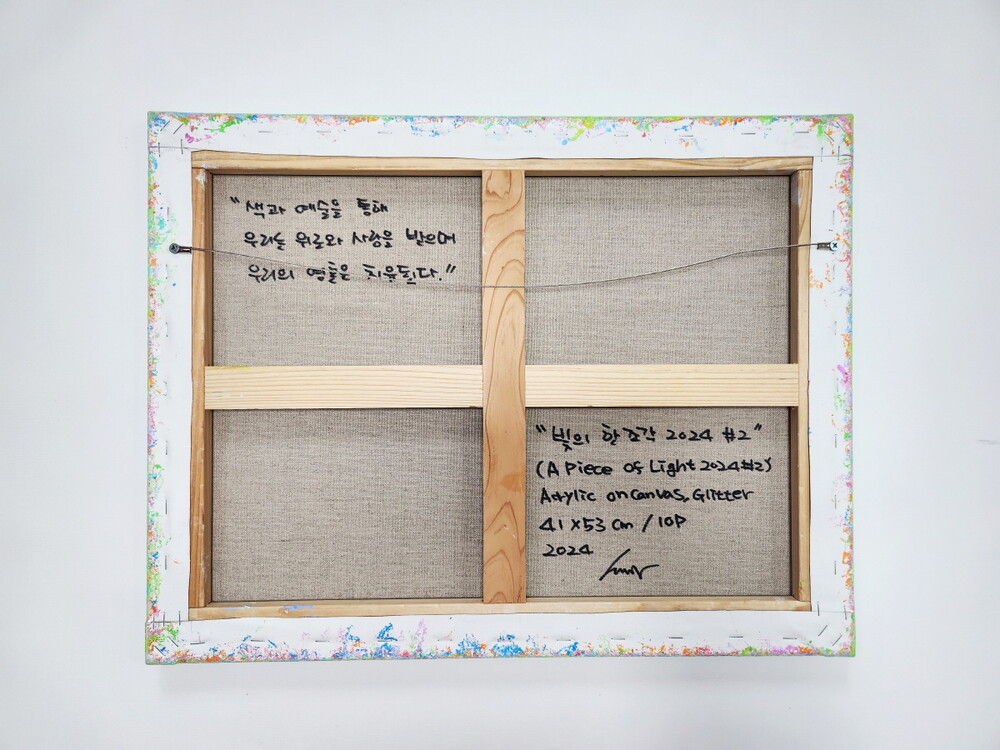 "색과 예술을 통해
우리는 위로와 사랑을 받으며
우리의 영혼은 치유된다."
"빛의 한 조각 2024 #2"
(A Piece of Light 2024 #2)
Acrylic on Canvas, Glitter
41 x 53 cm / 10P
2024